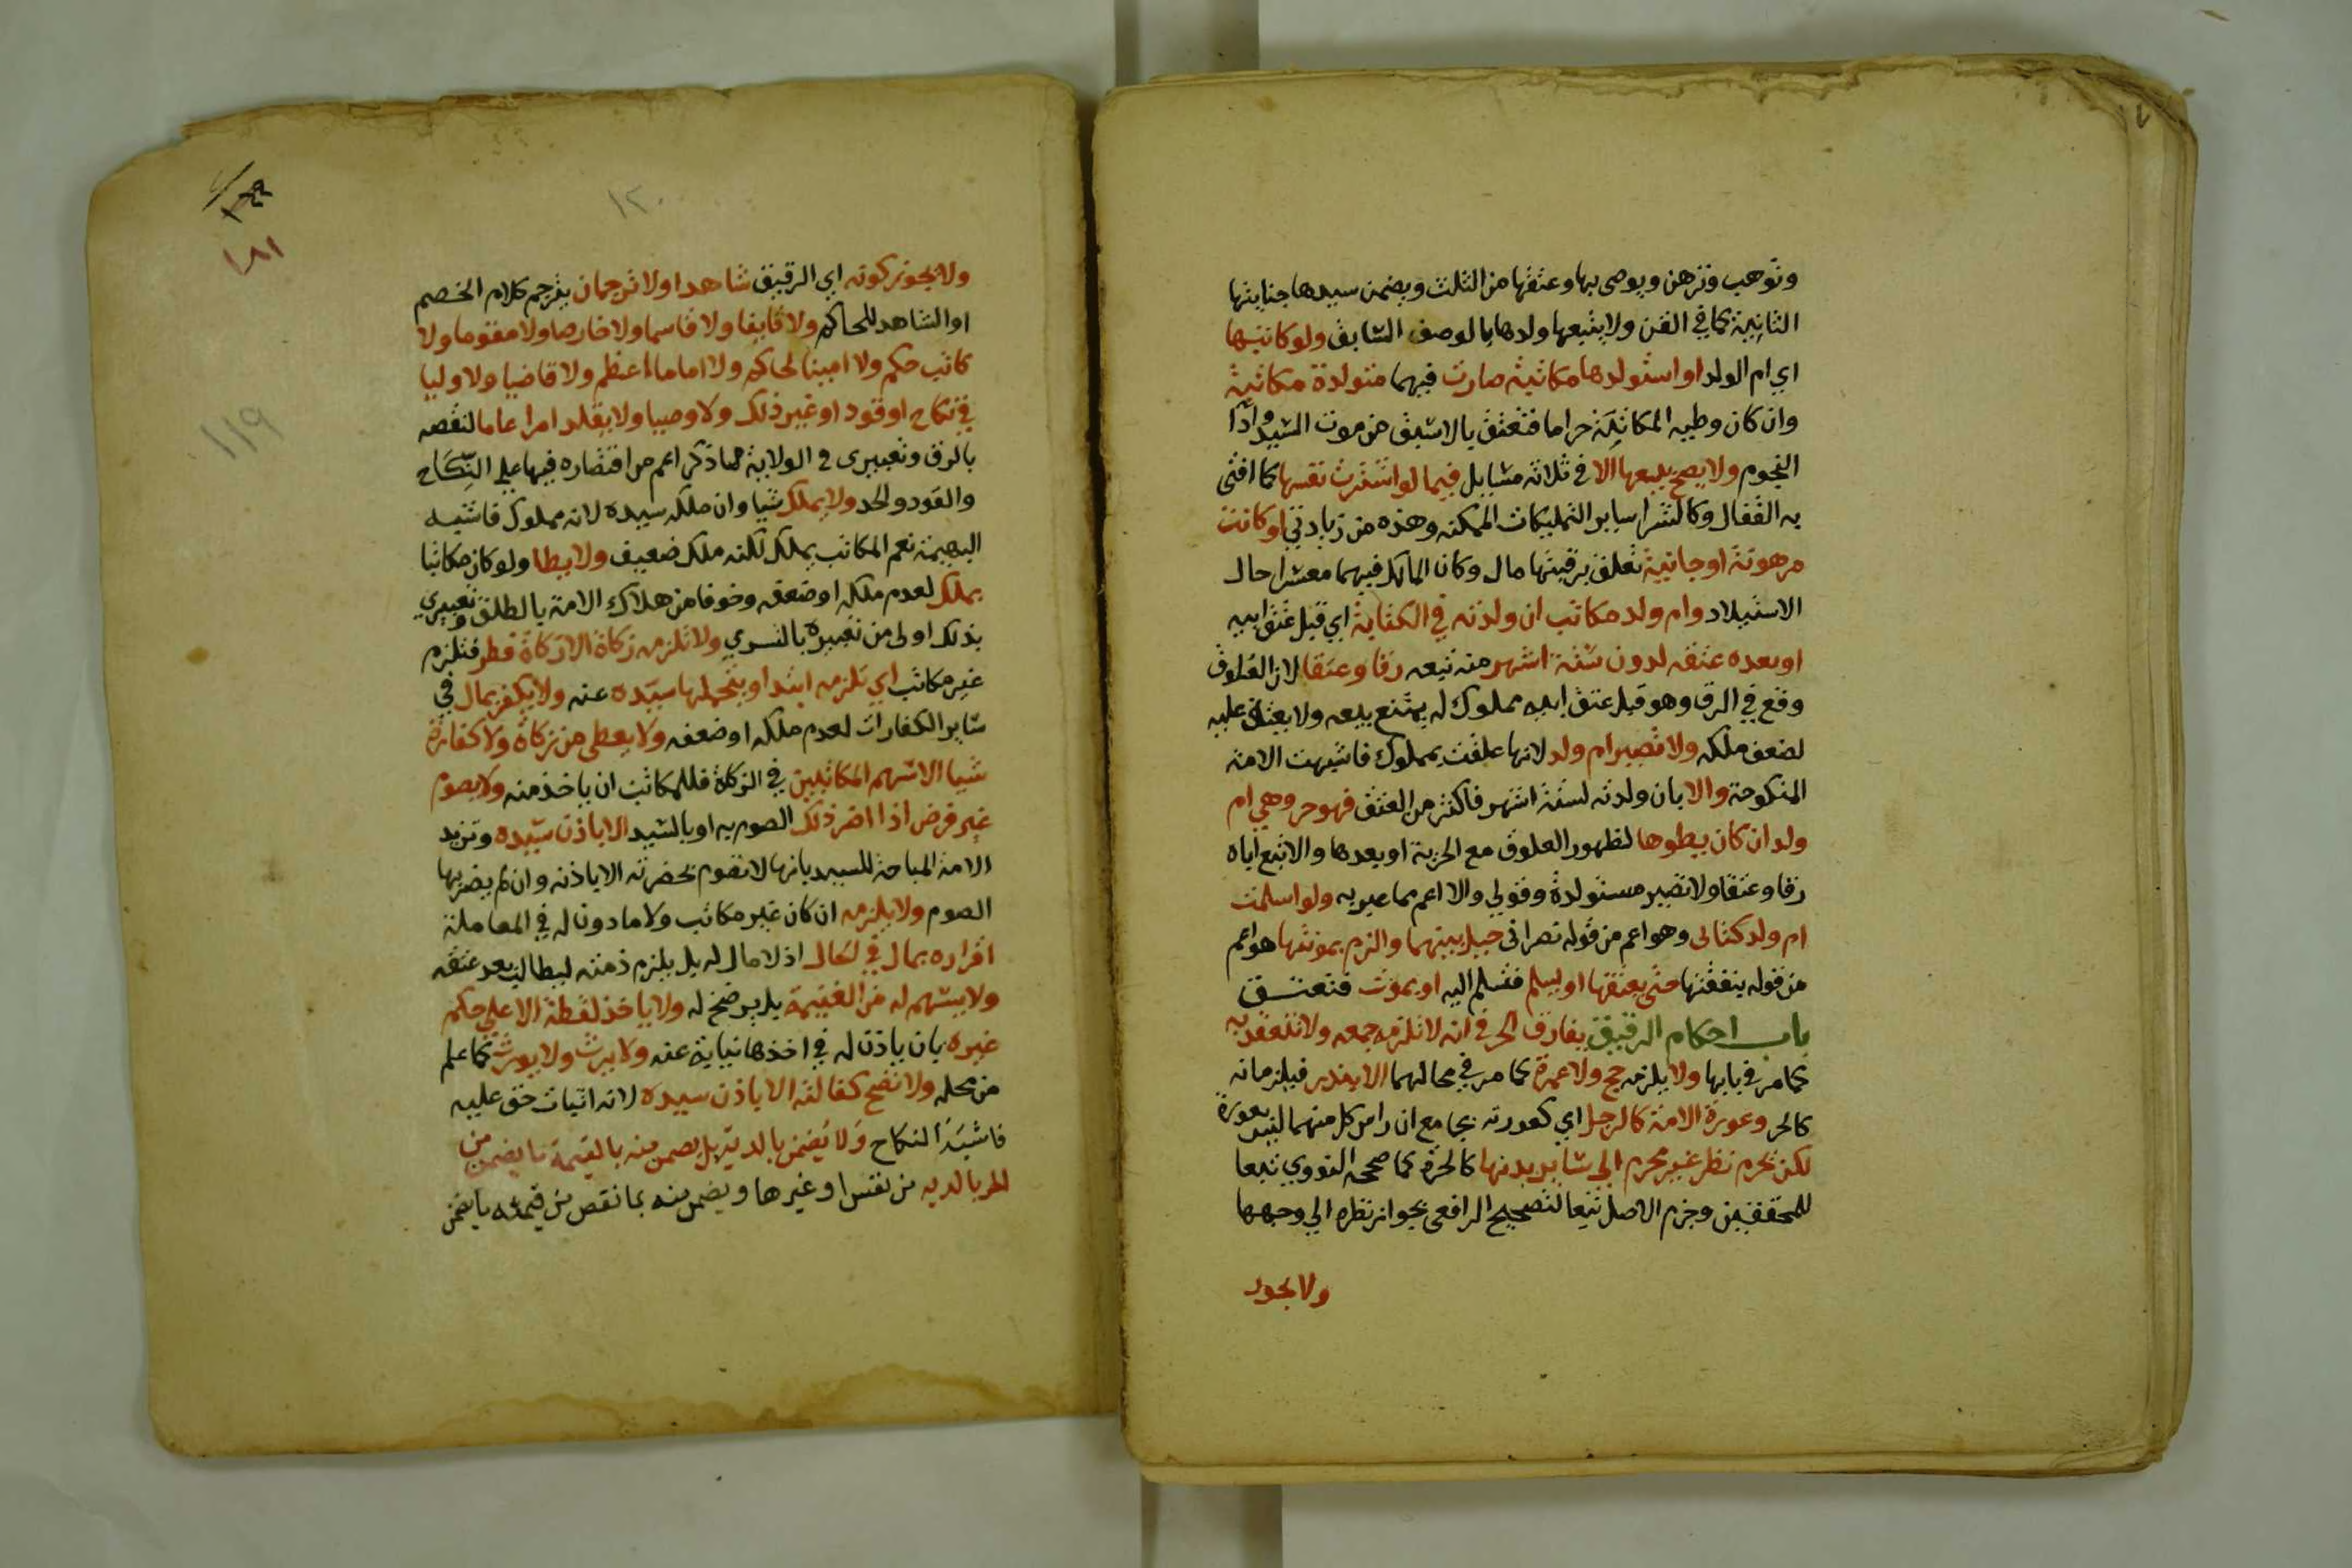 وتوهب وترهن ويوصى بها وعتقها من الثلث ويضمن سيدها جنايتها
الثانية كما في القن ولا يتبعها ولدها بالوصف السابق ولو كاتبها
اي ام الولد او استولدها مكاتبة صارت فيهما متولدة مكاتبة
وان كان وطيه المكاتبة حراما فتعتق بالاسبق من موت السيد واداٴ
النجوم ولا يصح بيعها الا في ثلاثة مسايل فيما لو اشترت نفسها كما افتى
به القفال وكالشرا ساير التمليكات الممكنه وهذه من زيادتي او كانت
مرهونة او جانية تعلق برقبتها مال وكان المالك فيهما معسرا حال
الاستيلاد وام ولد مكاتب ان ولدته في الكتابة اي قبل عتق ابيه
او بعده عتقه لدون ستة اشهر منه تبعه رقا وعتقا لان العلوق
وقع في الرق وهو قبل عتق ابيه مملوك له يمتنع بيعه ولا يعتق عليه
لضعف ملكه ولا تصير ام ولد لانها علقت بمملوك فاشبهت الامة
المنكوحة والا بان ولدته لستة اشهر فاكثر من العتق فهو حر وهي ام
ولد ان كان يطوها لظهور العلوق مع الحرية او بعدها والا تبع اياه
رقا وعتقا ولا تصير مستولدة وقولي والا اعم مما عبر به ولو اسلمت
ام ولد كتابي وهو اعم من قوله نصراني حيل بينهما والزم بمونتها هو اعم
من قوله بنفقتها حتى يعتقها او يسلم فتسلم اليه او يموت فتعتق
باب احكام الرقيق يفارق الحر في انه لا تلزمه جمعه ولا تنعقد به
كما مر في بابها ولا يلزمه حج ولا عمرة كما مر في محالهما الا بنذر فيلزمانه
كالحر وعورة الامة كالرجل اي كعورته بجامع ان راس كل منهما ليس بعورة
لكن يحرم نظر غير محرم الي ساير بدنها كالحرة كما صححه النووي تبعا
للمحققين وجزم الاصل تبعا لتصحيح الرافعي بجواز نظره الي وجهها
ولا يجوز
١٢٠
١٨١
١١٩
ولا يجوز كونه اي الرقيق شاهدا ولا ترجمان يترجم كلام الخصم
او الشاهد للحاكم ولا قايفا ولا قاسما ولا خارصا ولا مقوما ولا
كاتب حكم ولا امينا لحاكم ولا اماما اعظم ولا قاضيا ولا وليا
في نكاح او قود او غير ذلك ولا وصيا ولا يقلد امرا عاما لنقصه
بالرق وتعبيري في الولاية بما ذكر اعم من اقتصاره فيها على النكاح
والقود والحد ولا يملك شيا وان ملكه سيده لانه مملوك فاشبه
البهيمة نعم المكاتب يملك لكنه ملك ضعيف ولا يطا ولو كان مكاتبا
بملك لعدم ملكه او ضعفه وخوفا من هلاك الامة بالطلق وتعبيري
بذلك اولى من تعبيره بالتسري ولا تلزمه زكاة الا زكاة فطر فتلزم
غير مكاتب اي تلزمه ابتدا ويتحملها سيده عنه ولا يكفر بمال في
ساير الكفارات لعدم ملكه او ضعفه ولا يعطى من زكاة ولا كفارة
شيا الا سهم المكاتبين في الزكاة فللمكاتب ان ياخذ منه ولا يصوم
غير فرض اذا اضر ذلك الصوم به او بالسيد الا باذن سيده وتزيد
الامة المباحة للسيد بانها لا تقوم بحضرته الا باذنه وان لم يضر بها
الصوم ولا يلزمه ان كان غير مكاتب ولا مادونا له في المعاملة
اقراره بمال في الحال اذ لا مال له بل يلزم ذمته ليطالب بعد عتقه
ولا يسهم له من الغنيمة بل يرضخ له ولا ياخذ لقطة الا على حكم
غيره بان ياذن له في اخذها نيابة عنه ولا يرث ولا يورث كما علم
من محله ولا تصح كفالته الا باذن سيده لانه اثبات حق عليه
فاشبه النكاح ولا يضمن بالدية بل يضمن منه بالقيمة ما يضمن من
الحر بالديه من نفس او غيرها ويضمن منه بما نقص من قيمته ما يضمن